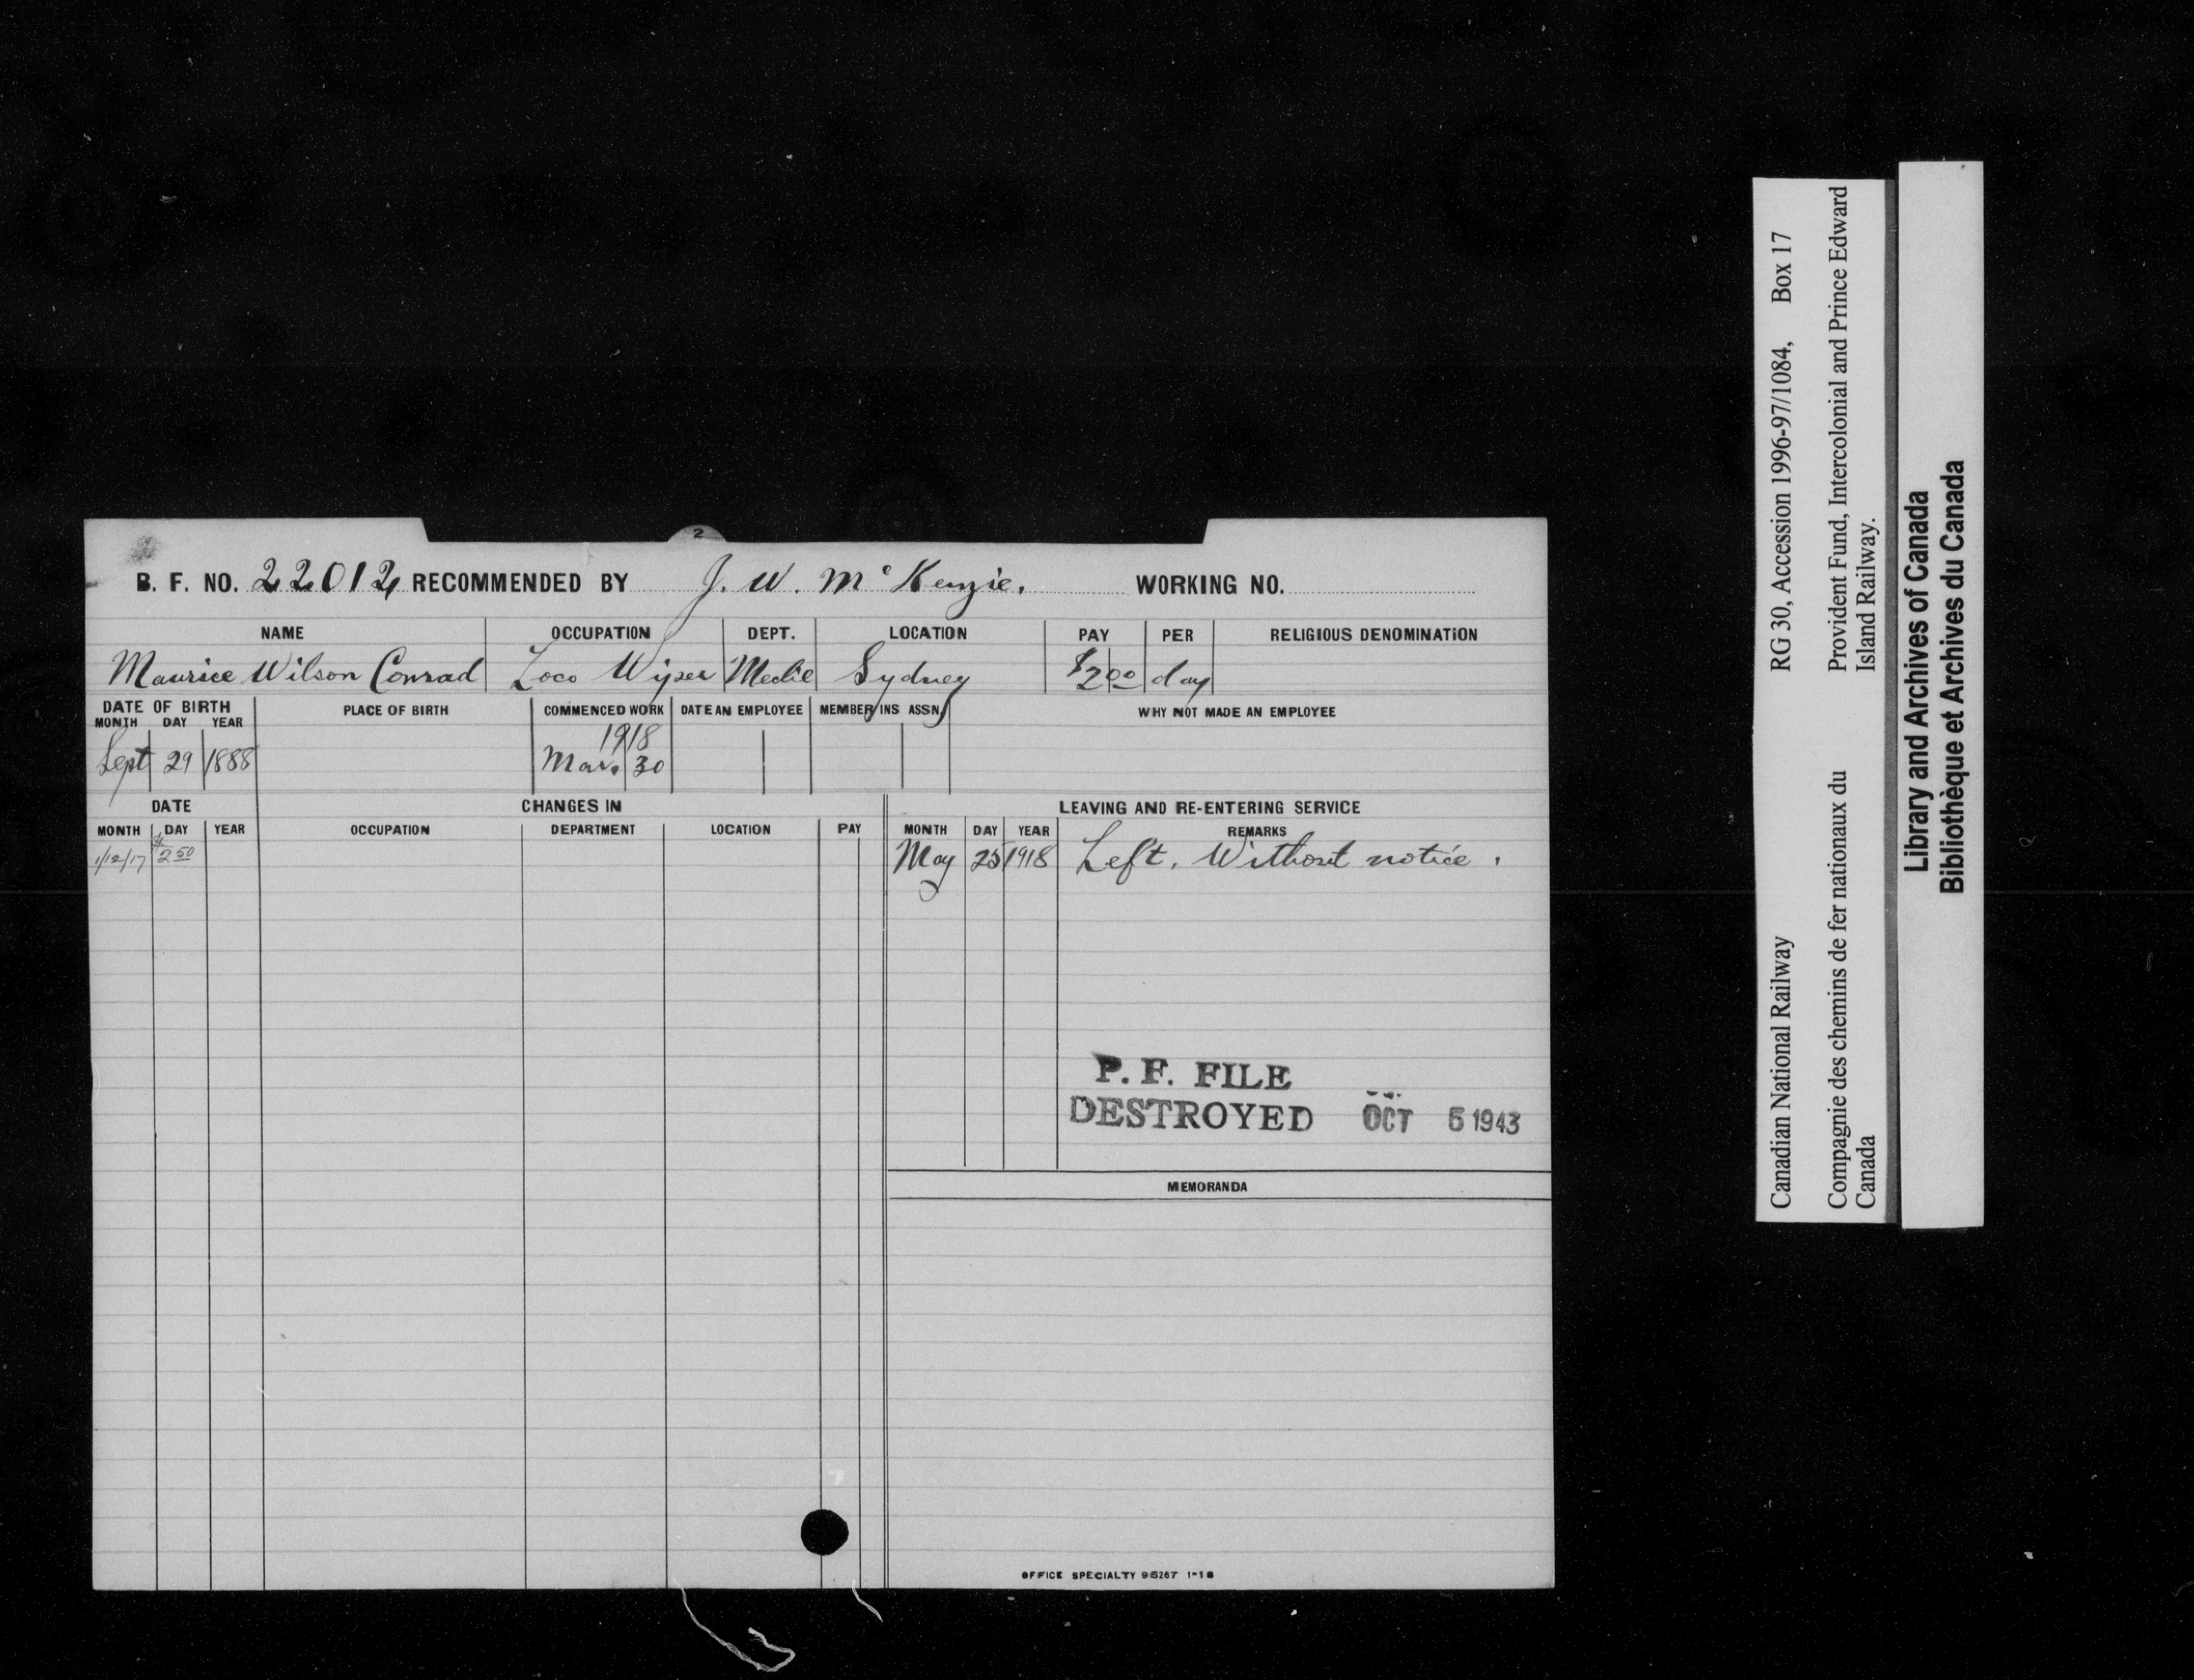 2
B. F. NO. 22012 RECOMMENDED BY J. W. McKenzie. WORKING NO.
NAME OCCUPATION DEPT. LOCATION PAY PER RELIGIOUS DENOMINATION
Maurice Wilson Conrad Loco Wiper Mechl Sydney $2.00 day
DATE OF BIRTH PLACE OF BIRTH COMMENCED WORK DATE AN EMPLOYEE MEMBER INS ASSN. WHY NOT MADE AN EMPLOYEE
MONTH DAY YEAR
1918
Sept 29 1888 Mar. 30
DATE CHANGES IN LEAVING AND RE-ENTERING SERVICE
MONTH DAY YEAR OCCUPATION DEPARTMENT LOCATION PAY MONTH DAY YEAR REMARKS
1/12/17 $2.50 May 25 1918 Left. Without notice.
P. F. FILE
DESTROYED OCT 5 1943
MEMORANDA
OFFICE SPECIALTY 95267 1-18
Canadian National Railway RG 30, Accession 1996-97/1084, Box 17
Compagnie des chemins de fer nationaux du Provident Fund, Intercolonial and Prince Edward
Canada Island Railway.
Library and Archives of Canada
Bibliothèque et Archives du Canada